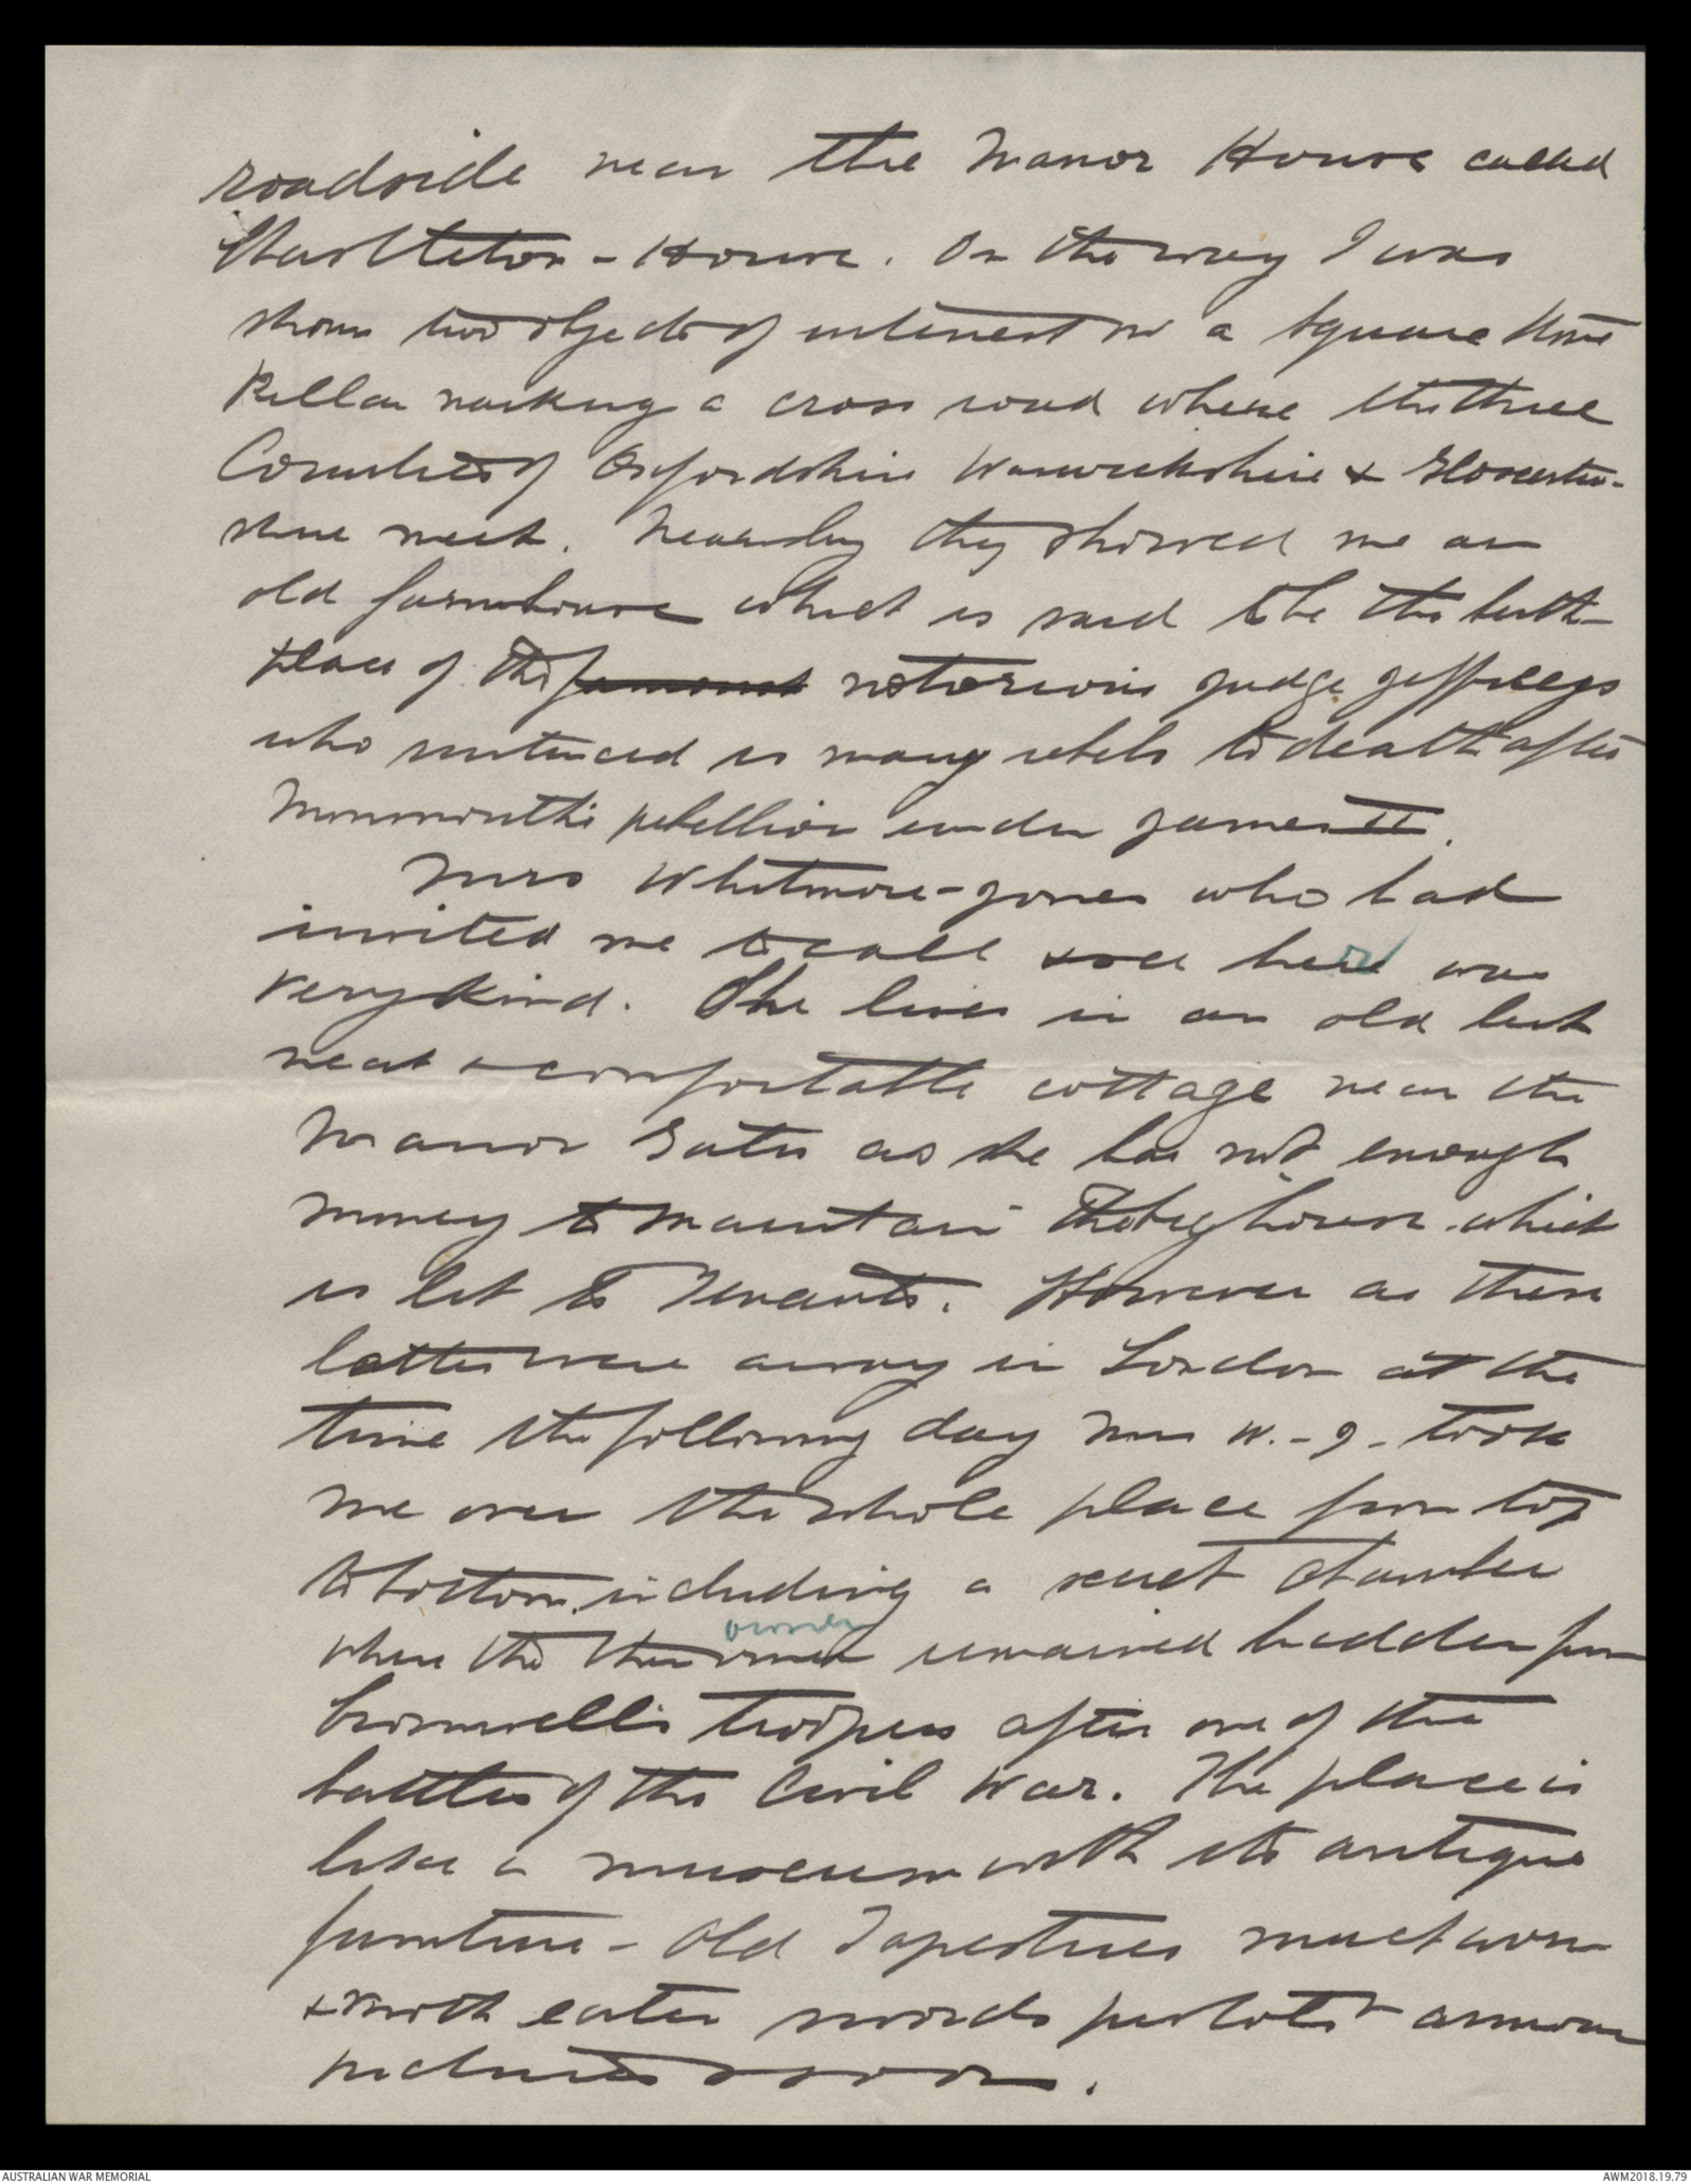 roadside near the Manor House called
Chastleton - House. On the way I was
shown two objects of interest a square stone
Pillar marking a cross road where the three
Counties of Oxfordshire Warwickshire & Gloucester-
shire meet. Nearby they showed me an
old farmhouse which is said to be the birth-
place of the famous notorious Judge Jeffreys
who sentenced so many rebels to death after
Monmouth's rebellion under James II.
Mrs Whitmore-Jones who had
invited me to call & see her was
very kind. She lives in an old but
neat & comfortable cottage near the
Manor Gates as she has not enough
money to maintain the big house which
is let to Tenants. However as these
latter were away in London at the
time the following day Mrs W.-J. took
me over the whole place from top
to bottom including a secret chamber
owner
where the then owner remained hidden from
Cromwell's troopers after one of the
battles of the Civil War. The place is
like a museum with its antique
furniture - Old Tapestries much worn
& moth eaten swords pistols armour
pictures & so on.
AUSTRALIAN WAR MEMORIAL
AWM2018.19.79